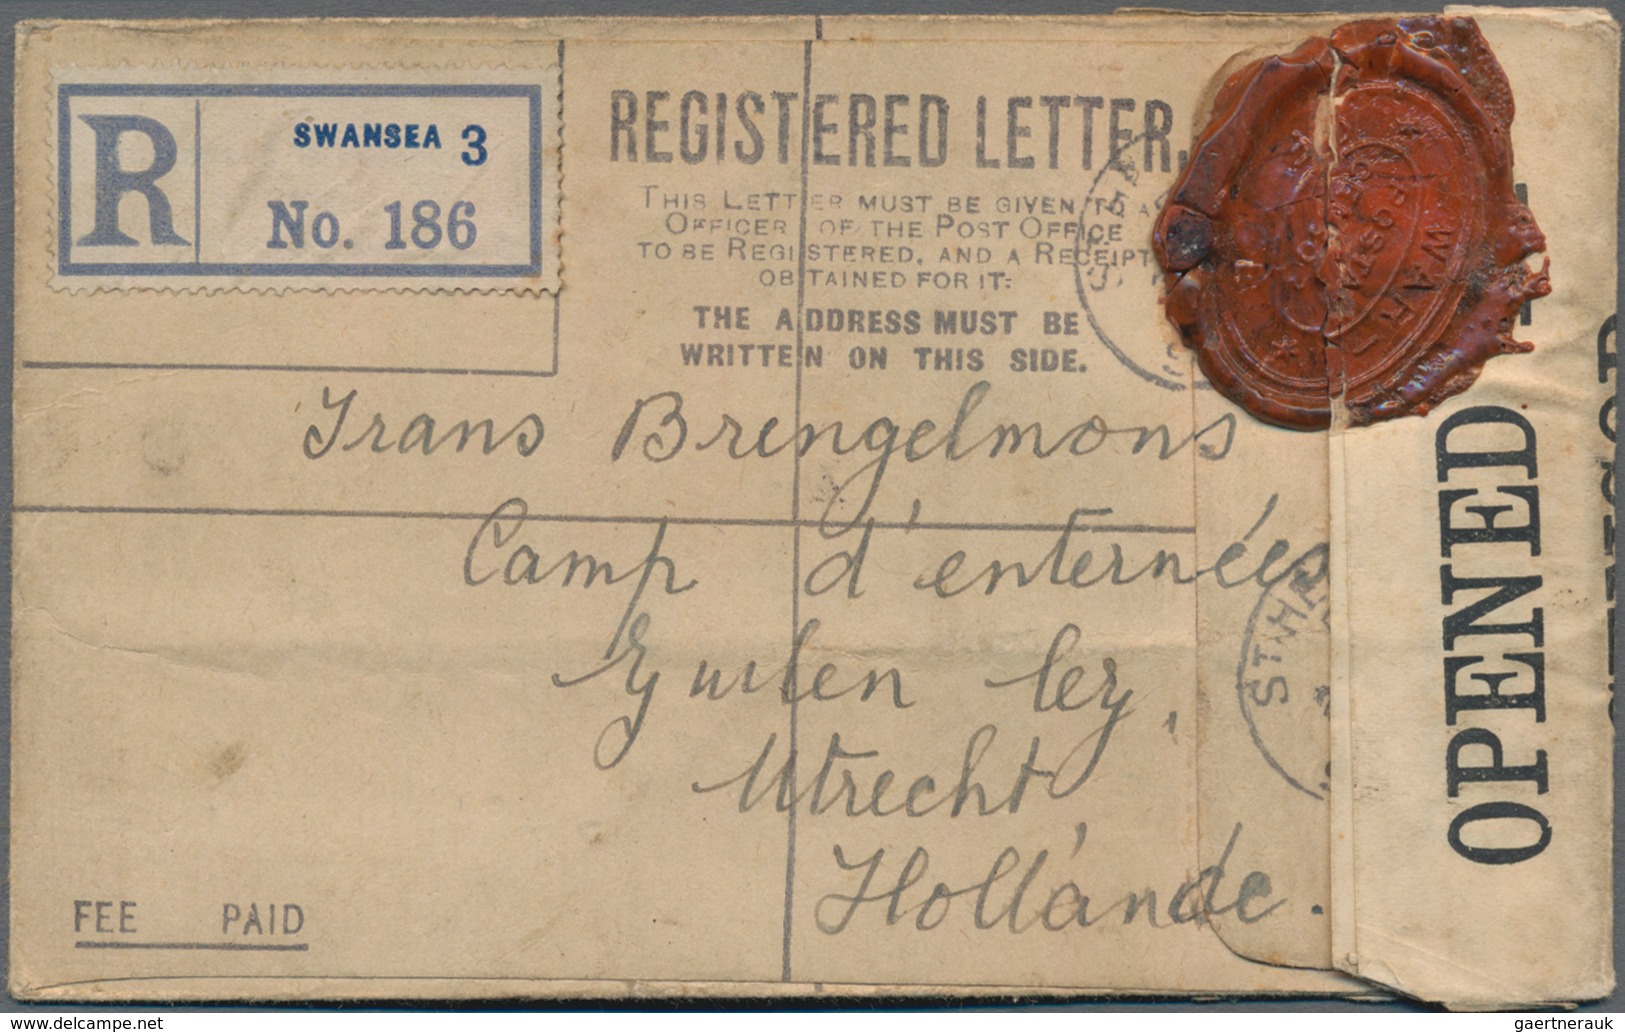 R
SWANSEA 3
No. 186
REGISTERED LETTER.
THIS LETTER MUST BE GIVEN TO AN
OFFICER OF THE POST OFFICE
TO BE REGISTERED, AND A RECEIPT
OBTAINED FOR IT:
THE ADDRESS MUST BE
WRITTEN ON THIS SIDE.
Frans Brengelmons
Camp d'enternées
ley.
Utrecht,
Hollande.
FEE PAID
OPENED
ST HE
WAR
POSTAL
gaertnerauk@delcampe.net